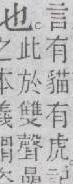 言有貓有虎
也。此於雙聲
之本義謂